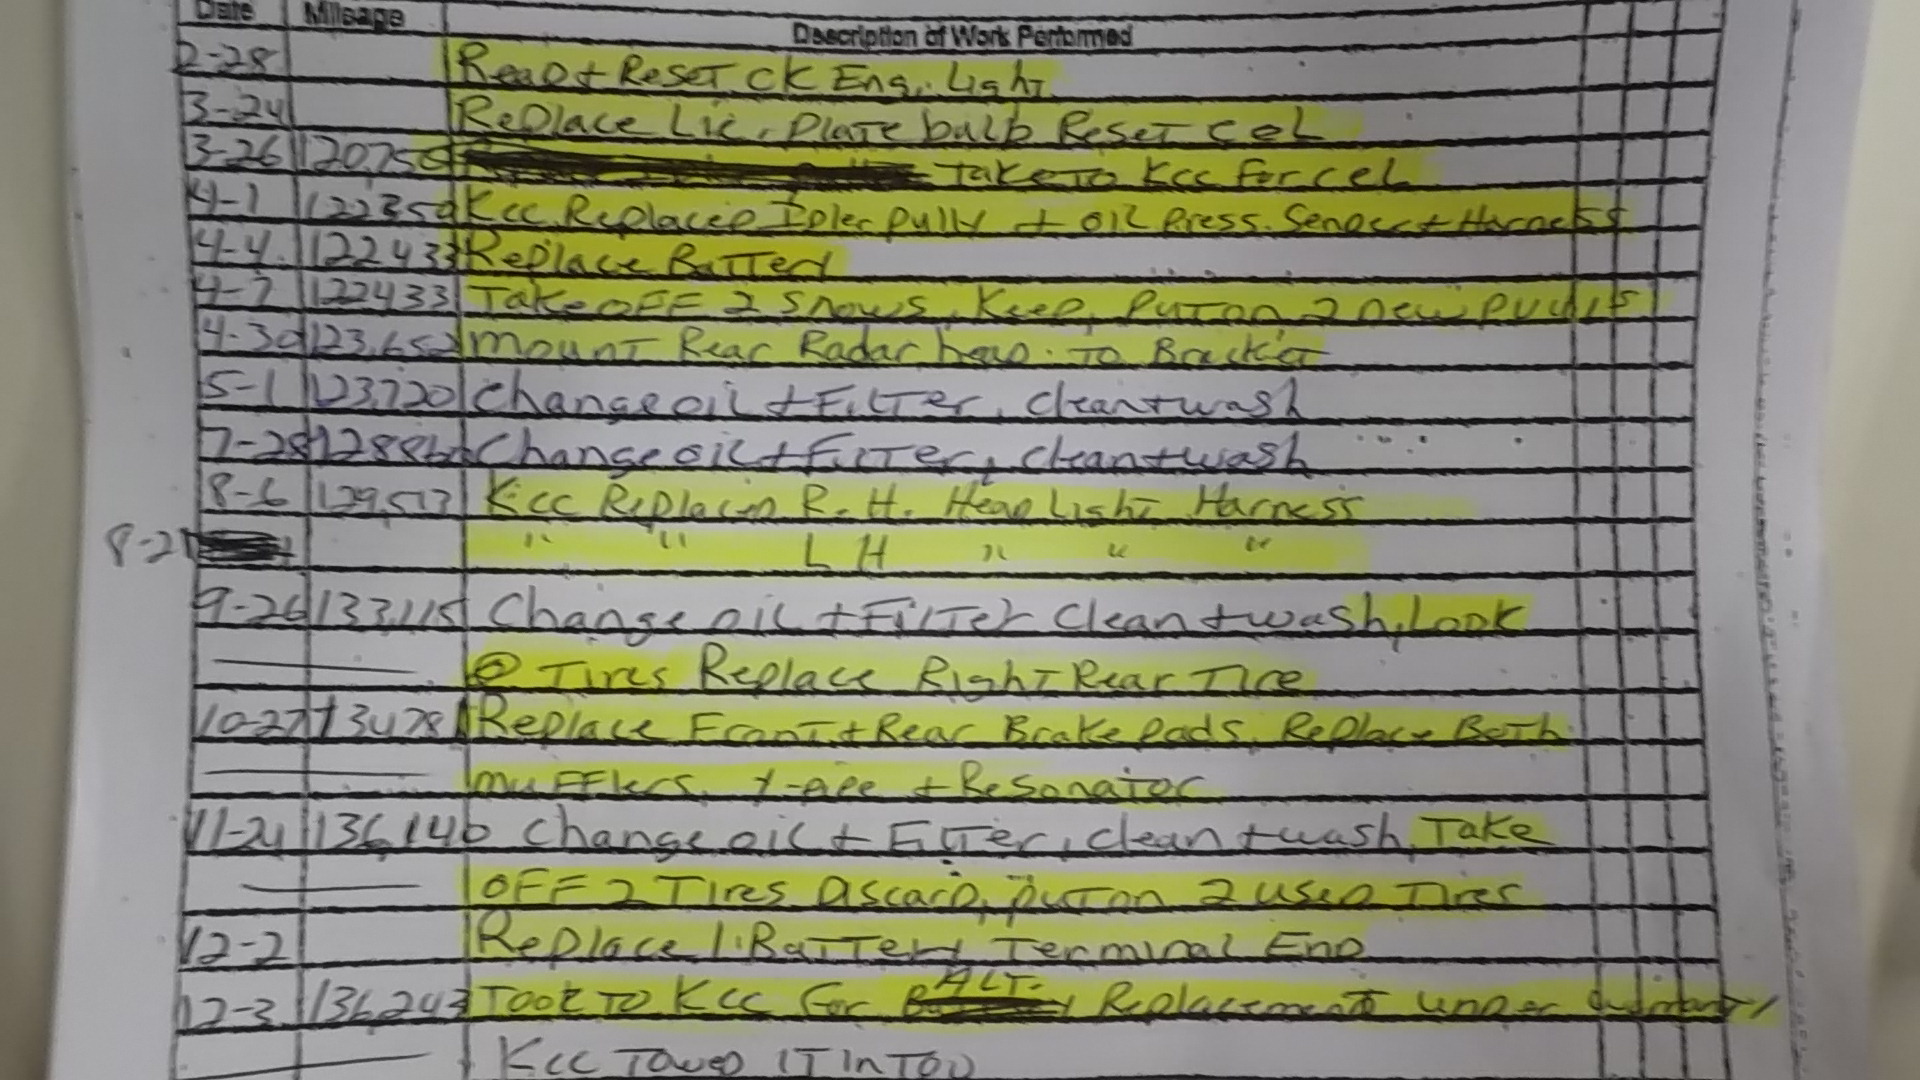 Date Mileage Description of Work Performed
2-28 Read + Reset CK Eng. Light
3-24 Replace Lic. Plate bulb Reset Cel
3-26 120,756 Take to Kcc for cel
4-1 122350 Kcc Replaced Idler pully + oil press. Sender + Harness
4-4 122433 Replace Battery
4-7 122433 Take off 2 Snows, Keep, Put on 2 new
4-30 123,652 mount Rear Radar head. To Bracket
5-1 123,720 Change oil + Filter, clean + wash
7-28 Change oil + Filter, clean + wash
8-6 129,513 Kcc Replaced R.H. Head Light Harness
8-21 " " L H " " "
9-26 133,115 Change oil + Filter clean + wash, Look
@ Tires Replace Right Rear Tire
10-27 134781 Replace Front + Rear Brake Pads, Replace Both
mufflers, Y-pipe + Resonator
11-21 136,146 Change oil + Filter, clean + wash, Take
off 2 Tires Discard, put on 2 used Tires
12-2 Replace 1 Battery Terminal End
12-3 136,243 Took To Kcc for ALT. Replacement under warranty
Kcc Towed IT In Too